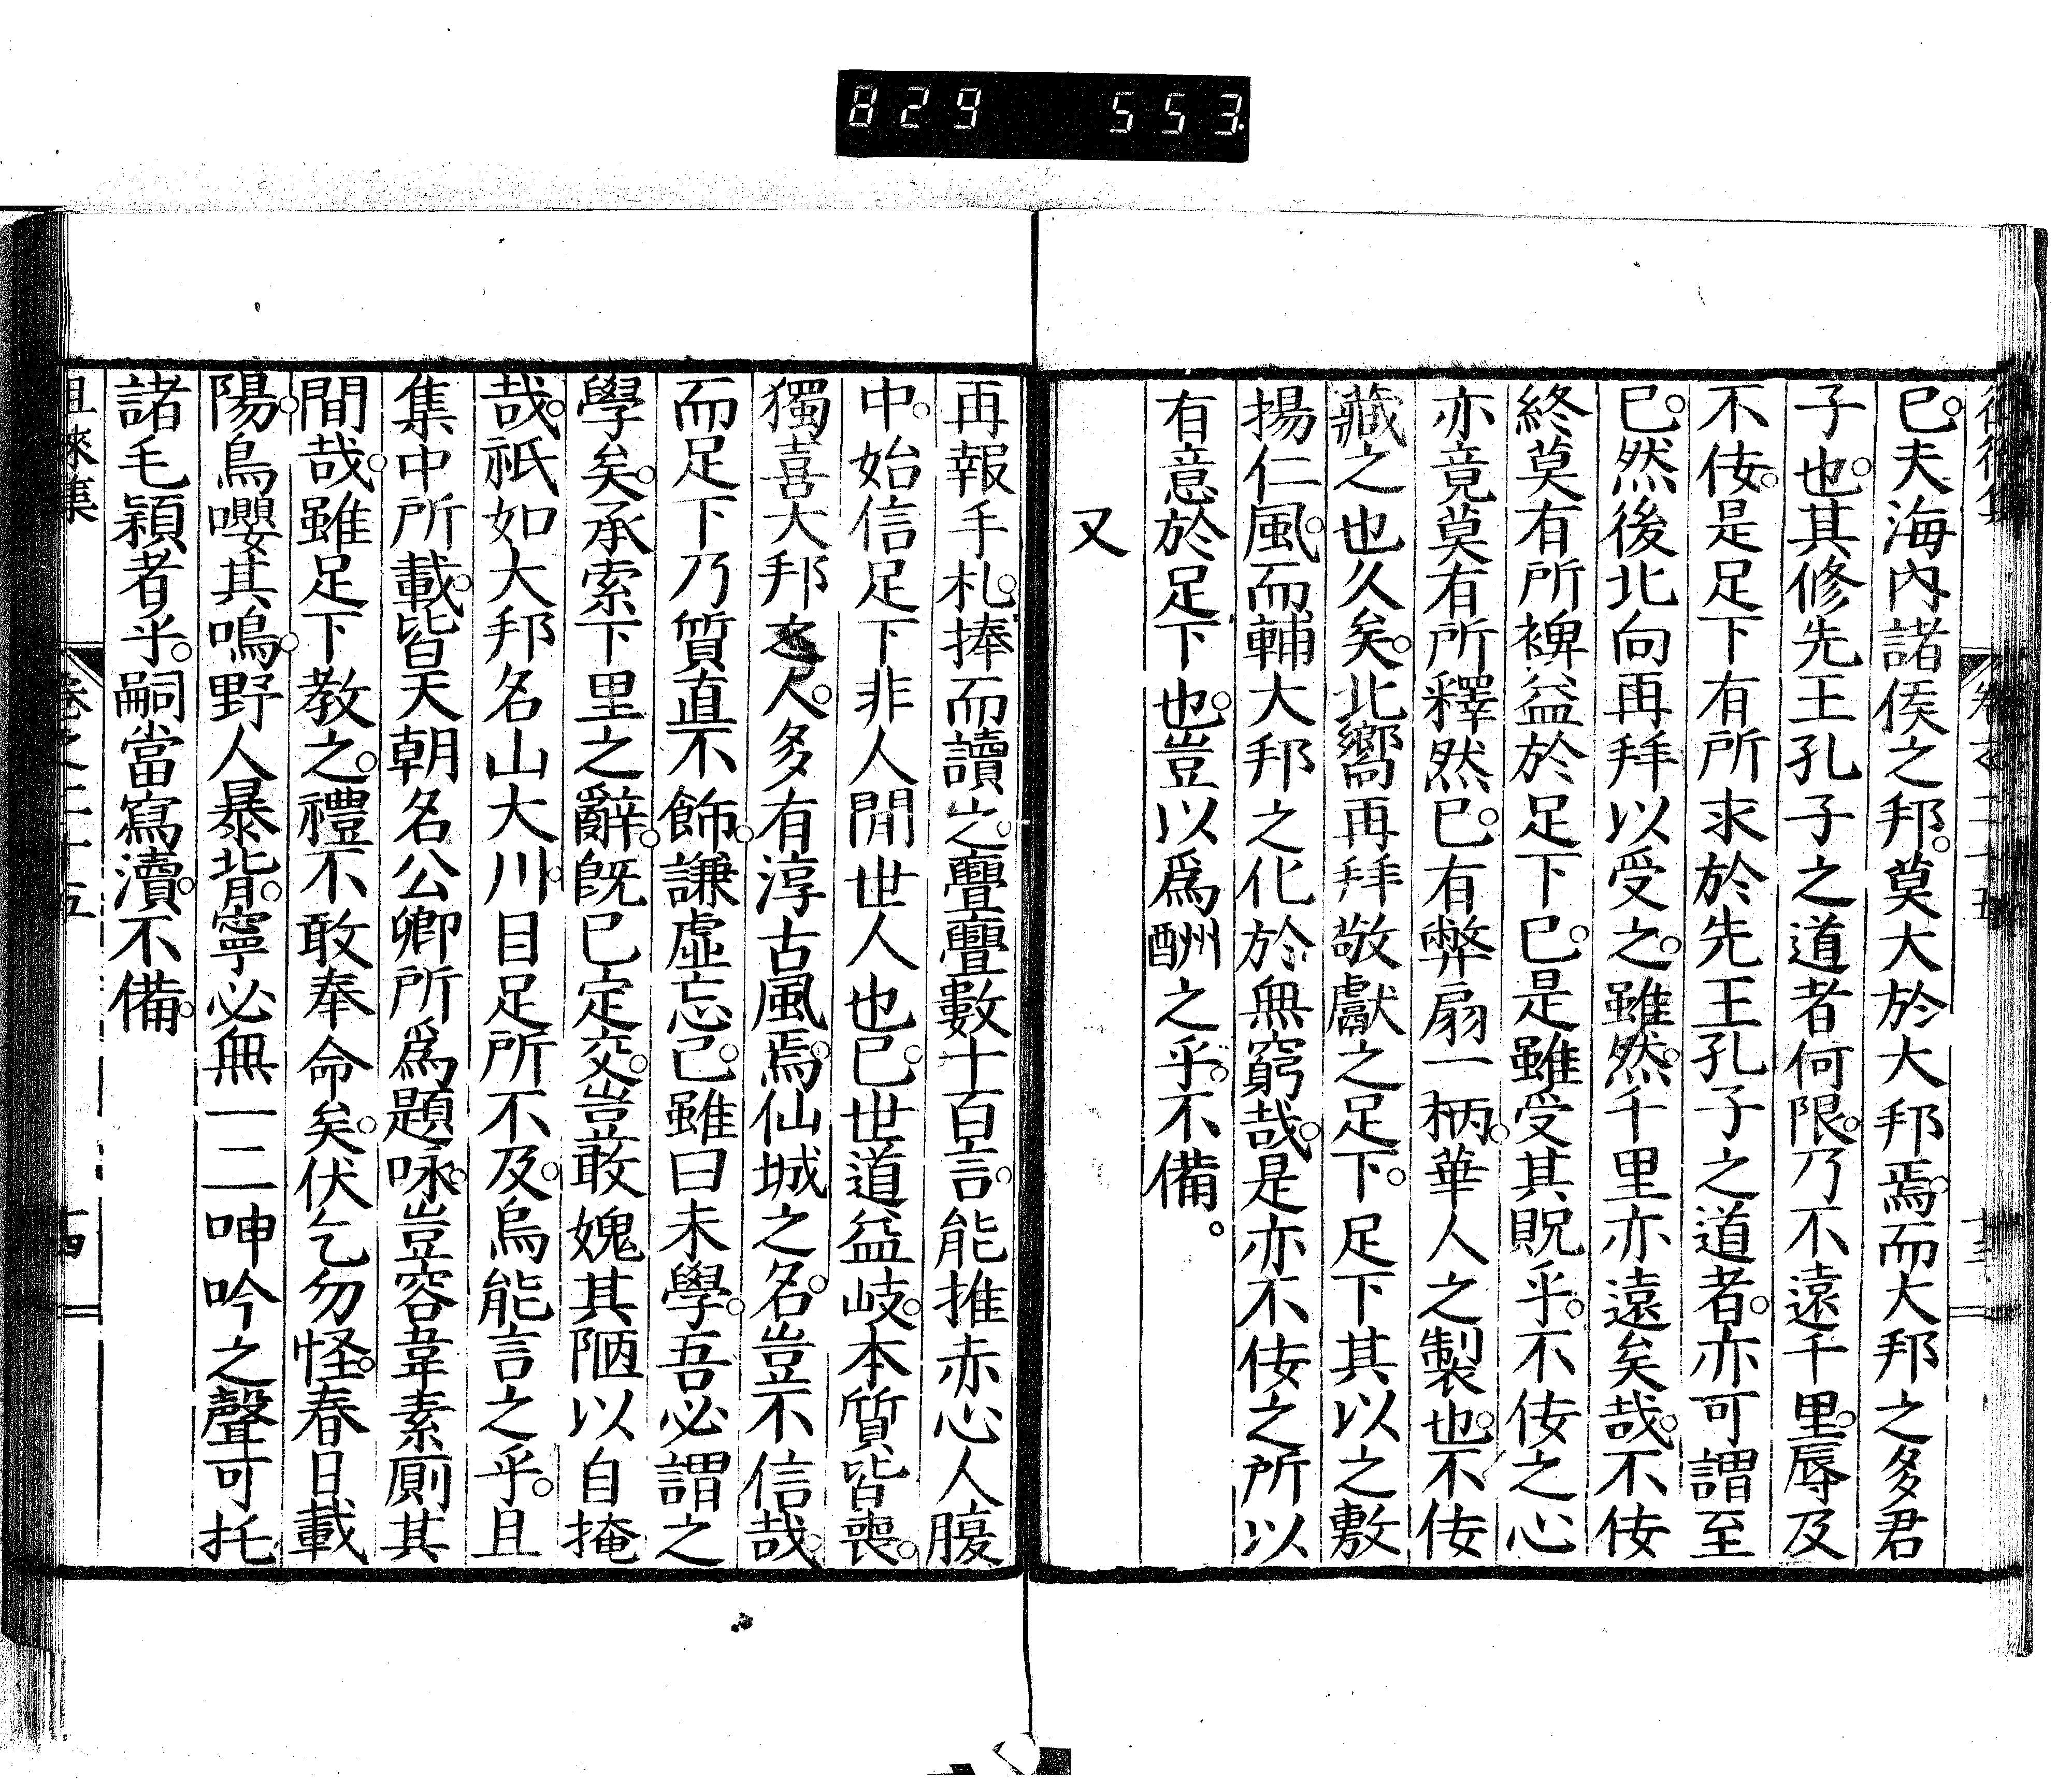 829 553
已。夫海內諸侯之邦。莫大於大邦焉。而大邦之多君
子也。其修先王孔子之道者何限。乃不遠千里。辱及
不佞。是足下有所求於先王孔子之道者。亦可謂至
已。然後北向再拜以受之。雖然。千里亦遠矣哉。不佞
終莫有所裨益於足下已。是雖受其貺乎。不佞之心
亦竟莫有所釋然已。有弊扇一柄。華人之製也。不佞
藏之也久矣。北嚮再拜敬獻之足下。足下其以之敷
揚仁風。而輔大邦之化於無窮哉。是亦不佞之所以
有意於足下也。豈以爲酬之乎。不備。
又
再報手札。捧而讀之。亹亹數十百言。能推赤心人腹
中。始信足下非人間世人也已。世道益岐。本質皆喪。
獨喜大邦之人。多有淳古風焉。仙城之名。豈不信哉。
而足下乃質直不飾。謙虛忘己。雖曰未學。吾必謂之
學矣。承索下里之辭。既已定交。豈敢媿其陋以自掩
哉。祇如大邦名山大川。目足所不及。烏能言之乎。且
集中所載。皆天朝名公卿所爲題咏。豈容韋素廁其
間哉。雖足下教之。禮不敢奉命矣。伏乞勿怪。春日載
陽。鳥嚶其鳴。野人暴背。寧必無一二呻吟之聲可托
諸毛穎者乎。嗣當寫瀆。不備。
徂徠集 卷之二十五 十四